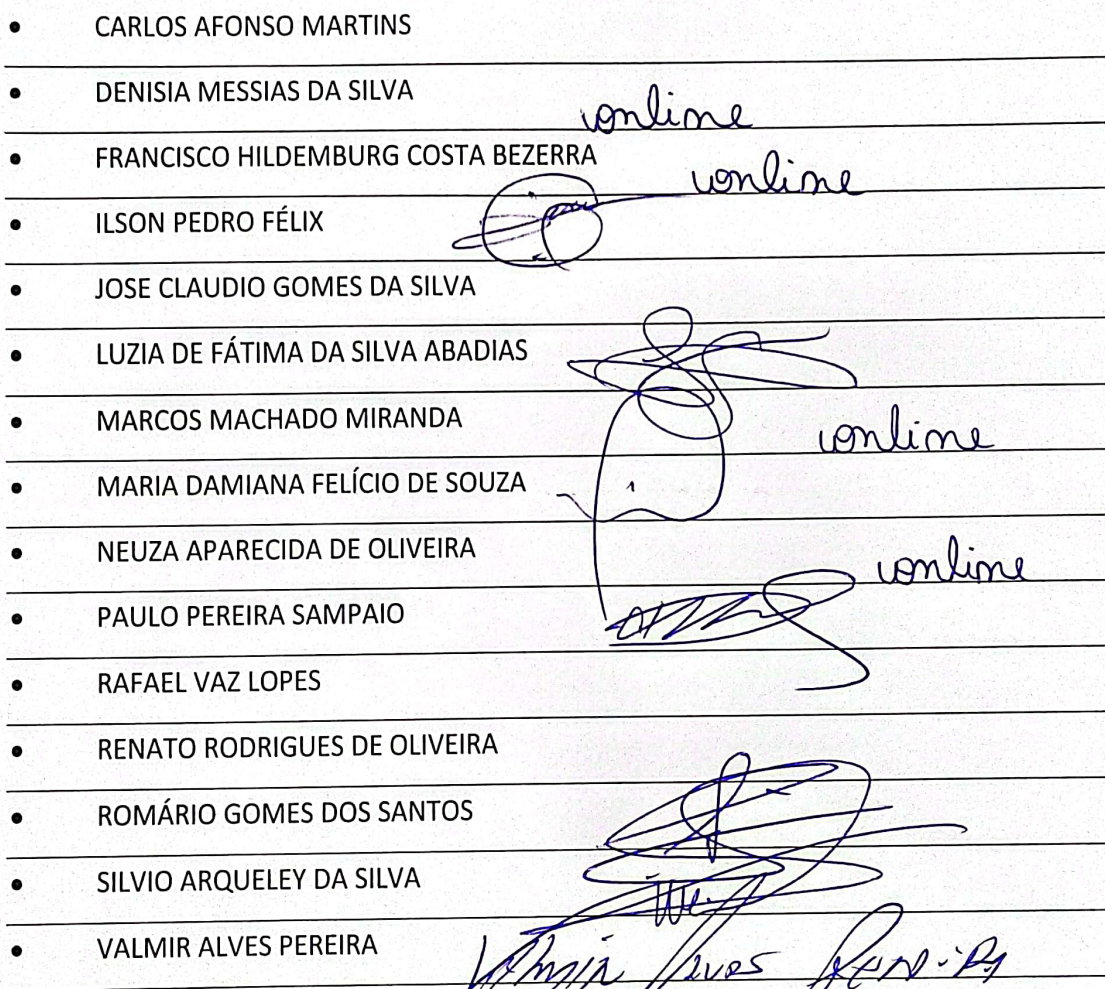 • CARLOS AFONSO MARTINS
• DENISIA MESSIAS DA SILVA online
• FRANCISCO HILDEMBURG COSTA BEZERRA online
• ILSON PEDRO FÉLIX
• JOSE CLAUDIO GOMES DA SILVA
• LUZIA DE FÁTIMA DA SILVA ABADIAS
• MARCOS MACHADO MIRANDA online
• MARIA DAMIANA FELÍCIO DE SOUZA
• NEUZA APARECIDA DE OLIVEIRA online
• PAULO PEREIRA SAMPAIO
• RAFAEL VAZ LOPES
• RENATO RODRIGUES DE OLIVEIRA
• ROMÁRIO GOMES DOS SANTOS
• SILVIO ARQUELEY DA SILVA
• VALMIR ALVES PEREIRA Valmir Alves Pereira